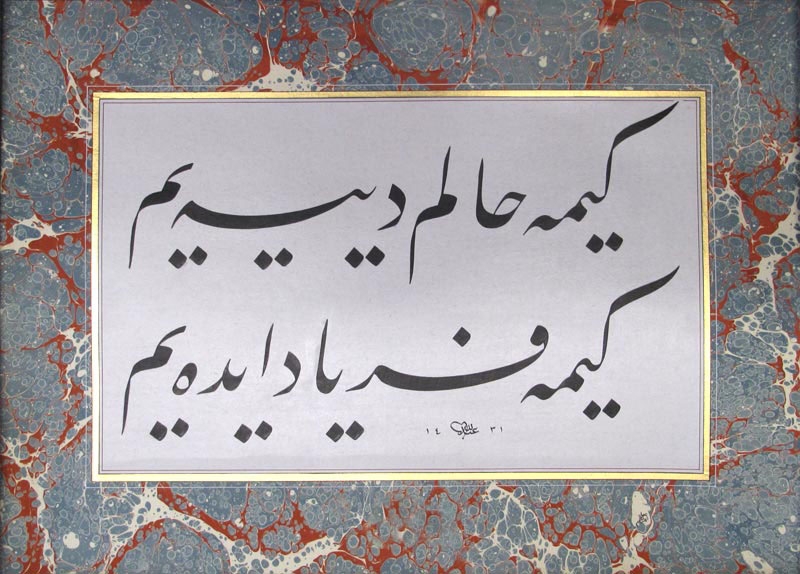 كیمه حالم دییه یم
كیمه فریاد ایده یم
١٤ ٣١